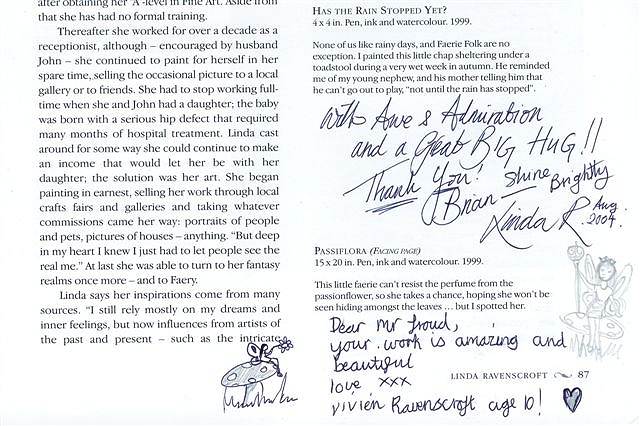 after obtaining her 'A'-level in Fine Art. Aside from
that she has had no formal training.
Thereafter she worked for over a decade as a
receptionist, although – encouraged by husband
John – she continued to paint for herself in her
spare time, selling the occasional picture to a local
gallery or to friends. She had to stop working full-
time when she and John had a daughter; the baby
was born with a serious hip defect that required
many months of hospital treatment. Linda cast
around for some way she could continue to make
an income that would let her be with her
daughter; the solution was her art. She began
painting in earnest, selling her work through local
crafts fairs and galleries and taking whatever
commissions came her way: portraits of people
and pets, pictures of houses – anything. “But deep
in my heart I knew I just had to let people see the
real me.” At last she was able to turn to her fantasy
realms once more – and to Faery.
Linda says her inspirations come from many
sources. “I still rely mostly on my dreams and
inner feelings, but now influences from artists of
the past and present – such as the intricate
HAS THE RAIN STOPPED YET?
4 x 4 in. Pen, ink and watercolour. 1999.
None of us like rainy days, and Faerie Folk are no
exception. I painted this little chap sheltering under a
toadstool during a very wet week in autumn. He reminded
me of my young nephew, and his mother telling him that
he can't go out to play, “not until the rain has stopped”.
With Awe & Admiration
and a Great BIG HUG!!
Thank You!
Brian – Shine Brightly
Linda R. Aug 2004.
PASSIFLORA (FACING PAGE)
15 x 20 in. Pen, ink and watercolour. 1999.
This little faerie can't resist the perfume from the
passionflower, so she takes a chance, hoping she won't be
seen hiding amongst the leaves ... but I spotted her.
Dear Mr froud,
your work is amazing and
beautiful
love xxx
vivien Ravenscroft age 10!
LINDA RAVENSCROFT 87